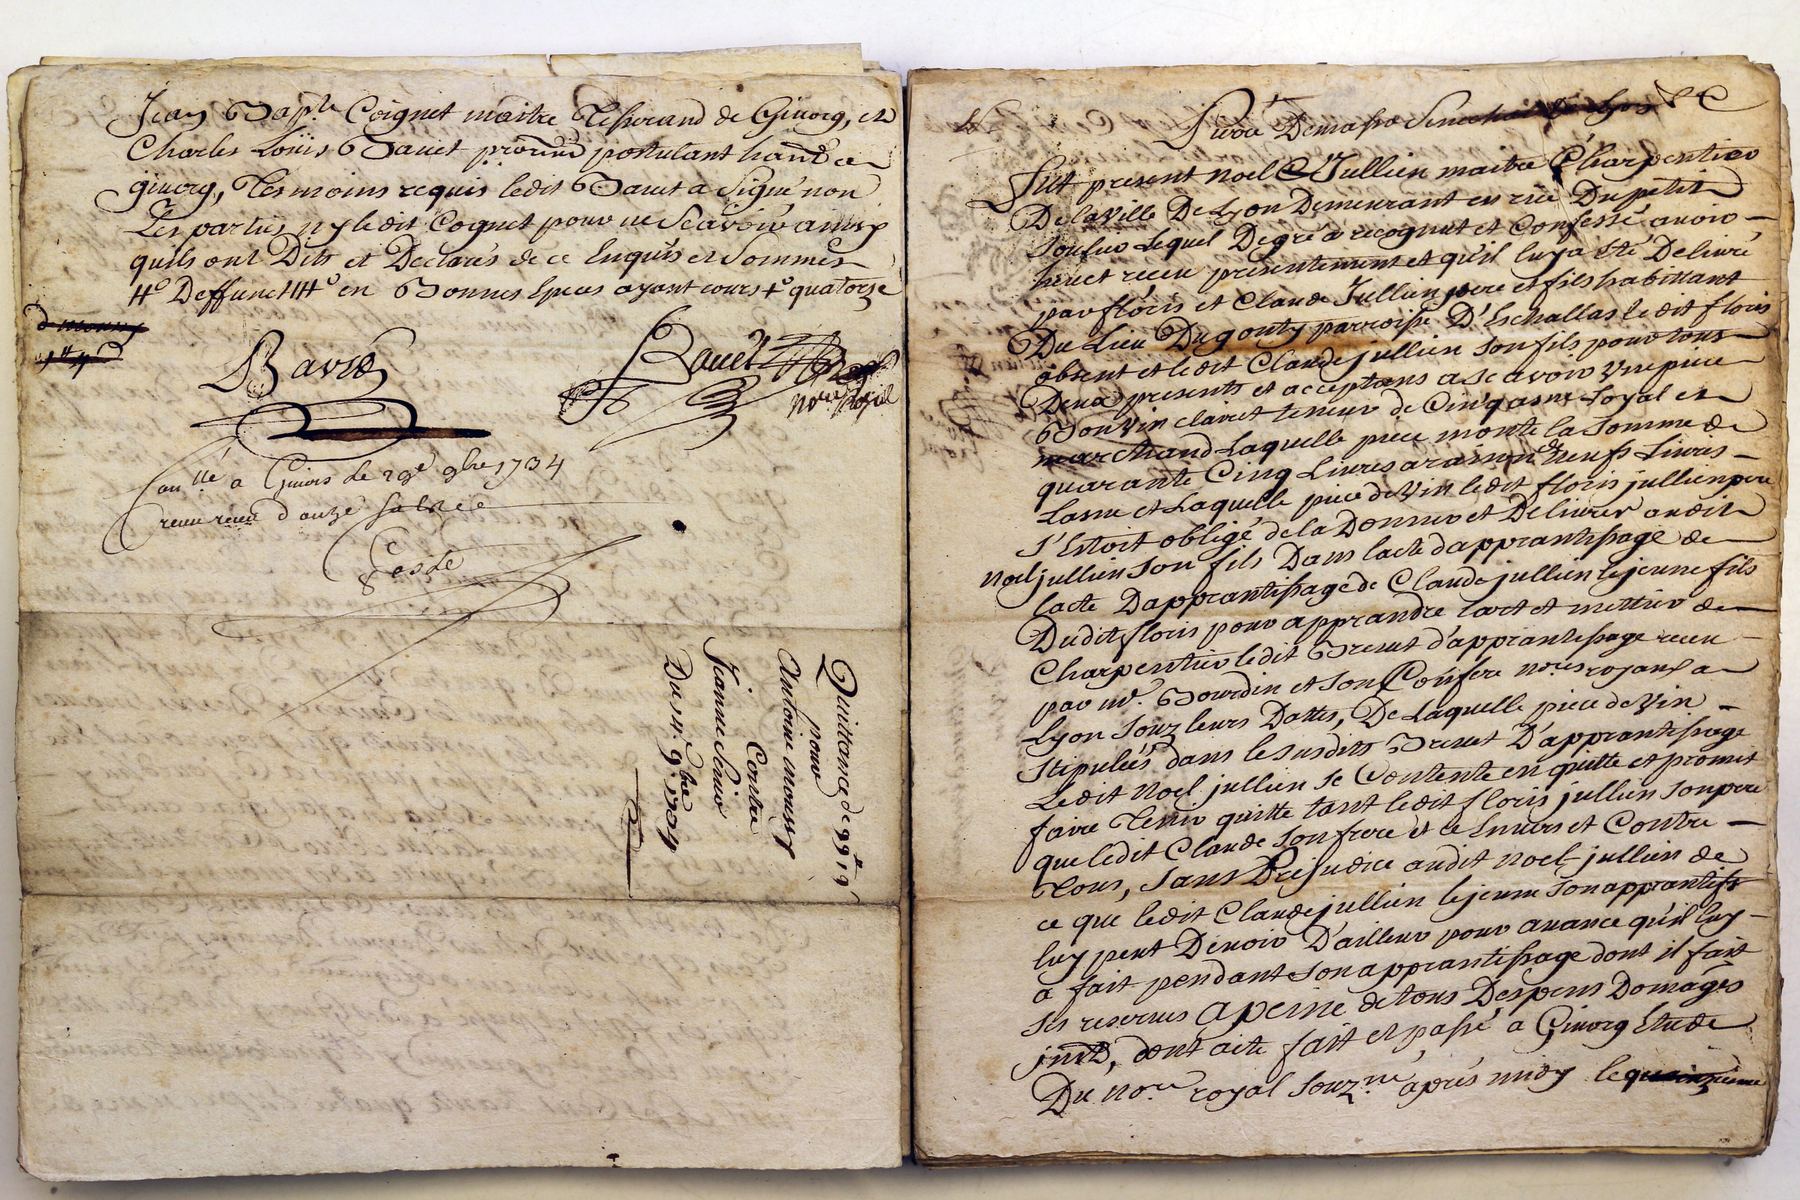 Jean Bapte. Coignet maitre Tisserand de Givorg, et
Charles Louis Bauet postulant a
givorg, Tesmoins requis ledit Bauet a Signé non
Les parties ny ledit Cognet pour ne Scavoir ainsy
quils ont Dits et Declarés de ce Enquis et Sommés
en Bonnes Especes ayant cours quatorze
Bavié
Bauet
Nore Royal
Conllé a Givors le 29e 9bre 1734
receu douze sols
Quittance de 99tt 19s
pour
Antoine moussy
Contre
Jeanne Senior
Du 14. 9bre 1734
Pierre Demasso Senechal de Lyon &C
Fut present noel Jullien maitre Charpentier
De la Ville De Lyon Demeurant en rüe Du petit
Soulier Lequel De gré a recognut et Confessé avoir
heu et receu presentement et qu'il luy a Eté Delivré
par floris et Claude Jullien pere et fils habittant
Du Lieu Du gouty parroisse D'Eschallas ledit floris
absent et ledit Claude jullien Son fils pour tous
Deux presents et acceptans a Scavoir Vne piece
Bon Vin clairet teneur de Cinq asnés Loyal et
marchand Laquelle piece monte la Somme de
quarante Cinq Livres a raison de neuf Livres
Lasne et Laquelle piece de Vin ledit floris jullien pere
S'Estoit obligé de la Donner et Delivrer audit
noel jullien Son fils Dans lacte dapprantissage de
lacte Dapprantissage de Claude jullien lejeune fils
Dudit floris pour apprandre lart et mettier de
Charpentier ledit Brevet d'apprantissage receu
par me. Bourdin et Son Confere nores royaux a
Lyon Souz leurs Dattes, De Laquelle piece de Vin
Stipulées dans le Susdits Brevet D'apprantissage
Ledit Noel jullien Se Contente en quitte et promet
faire Tenir quitte tant ledit floris jullien Son pere
que ledit Claude Son frere et ce Envers et Contre
Tous, Sans Prejudice audit noel jullien de
ce que ledit Claude jullien lejeune Son apprantifs
luy peut Devoir D'ailleur pour avance qu'il luy
a fait pendant Son apprantissage dont il fait
Ses reserves a peine de tous Despens Domages
jnts, dont acte fait et passé a Givorg Etude
Du Nore royal Souzné après midy le quinzieme